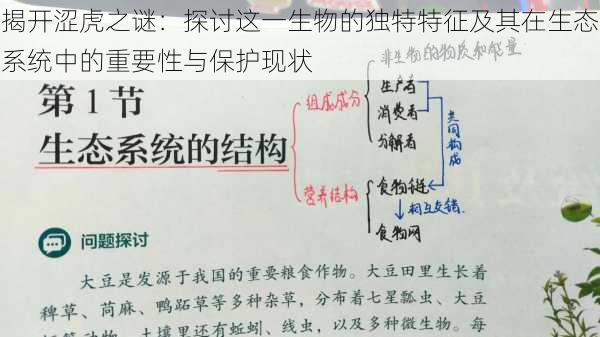 揭开涩虎之谜：探讨这一生物的独特特征及其在生态
系统中的重要性与保护现状
非生物的物质和能量
第1节
组成成分
生产者
消费者
分解者
共同构成
生态系统的结构
营养结构
食物链
相互交错
食物网
问题探讨
大豆是发源于我国的重要粮食作物。大豆田里生长着
稗草、苘麻、鸭跖草等多种杂草，分布着七星瓢虫、大豆
土壤里还有蚯蚓、线虫，以及多种微生物。每